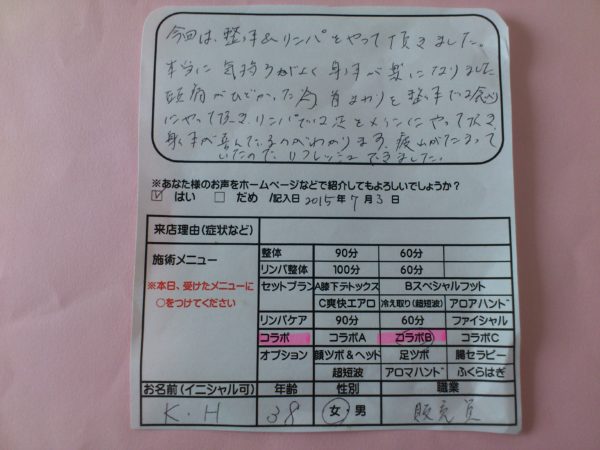 今回は、整体&リンパをやって頂きました。
本当に気持ちがよく身体が楽になりました
頭痛がひどかった為首まわりを整体では念入り
にやって頂き、リンパでは足をメインにやって頂き、
身体が喜んでいるのがわかります。疲れがたまって
いたので、リフレッシュできました。
※あなた様のお声をホームページなどで紹介してもよろしいでしょうか?
☑ はい □ だめ /記入日 2015年 7月 3日
来店理由(症状など)
施術メニュー
※本日、受けたメニューに
○をつけてください
整体 90分 60分
リンパ整体 100分 60分
セットプラン A膝下デトックス Bスペシャルフット
C爽快エアロ 冷え取り(超短波) アロアハンド
リンパケア 90分 60分 ファイシャル
コラボ コラボA コラボB コラボC
オプション 顔ツボ&ヘッド 足ツボ 腸セラピー
超短波 アロマハンド ふくらはぎ
お名前(イニシャル可) 年齢 性別 職業
K.H 38 女・男 販売員